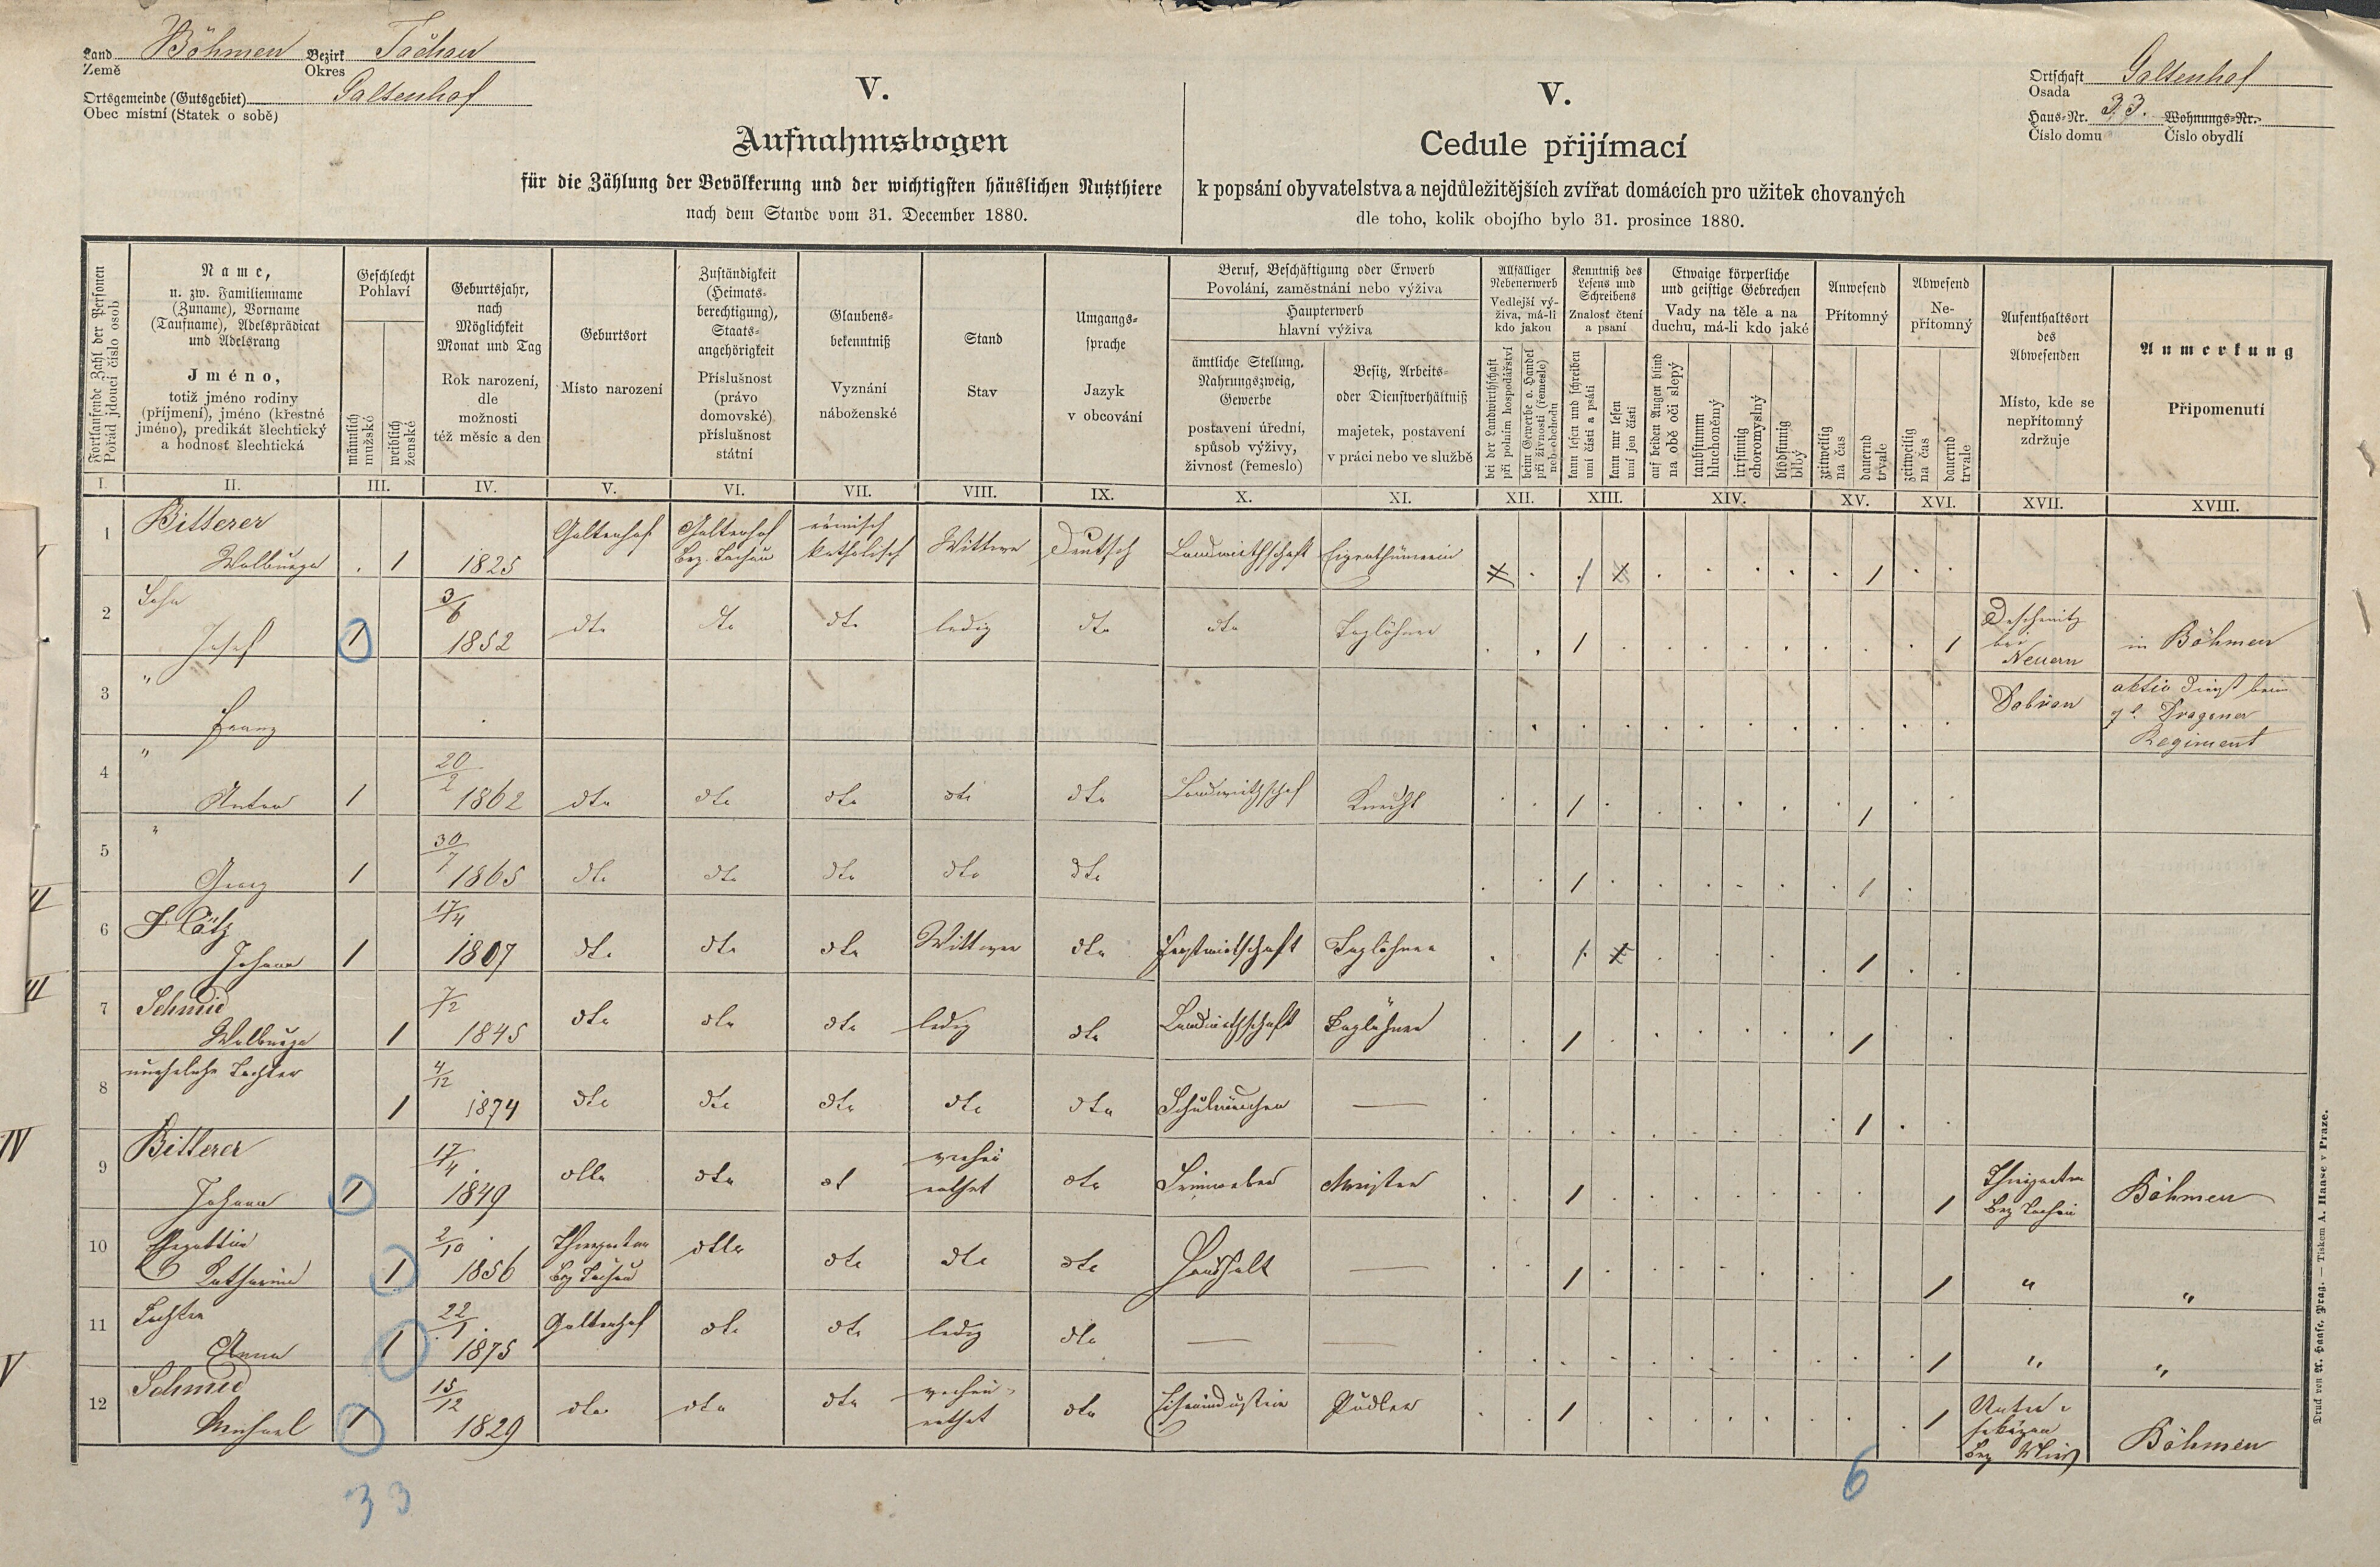 Land Böhmen Bezirk Tachau
Země Okres
Ortsgemeinde (Gutsgebiet) Galtenhof
Obec místní (Statek o sobě)
V.
Aufnahmsbogen
für die Zählung der Bevölkerung und der wichtigsten häuslichen Nutzthiere
nach dem Stande vom 31. December 1880.
V.
Cedule přijímací
k popsání obyvatelstva a nejdůležitějších zvířat domácích pro užitek chovaných
dle toho, kolik obojího bylo 31. prosince 1880.
Ortschaft Galtenhof
Osada
Haus-Nr. 33. Wohnungs-Nr.
Číslo domu Číslo obydlí
Fortlaufende Zahl der Personen
Pořád jdoucí číslo osob
Name,
u. zw. Familienname
(Zuname), Vorname
(Taufname), Adelsprädicat
und Adelsrang
Jméno,
totiž jméno rodiny
(příjmení), jméno (křestné
jméno), predikát šlechtický
a hodnosť šlechtická
Geschlecht
Pohlaví
männlich
mužské
weiblich
ženské
Geburtsjahr,
nach
Möglichkeit
Monat und Tag
Rok narození,
dle
možnosti
též měsíc a den
Geburtsort
Místo narození
Zuständigkeit
(Heimats-
berechtigung),
Staats-
angehörigkeit
Příslušnost
(právo
domovské)
příslušnost
státní
Glaubens-
bekenntniß
Vyznání
náboženské
Stand
Stav
Umgangs-
sprache
Jazyk
v obcování
Beruf, Beschäftigung oder Erwerb
Povolání, zaměstnání nebo výživa
Haupterwerb
hlavní výživa
ämtliche Stellung,
Nahrungszweig,
Gewerbe
postavení úřední,
spůsob výživy,
živnosť (řemeslo)
Besitz, Arbeits-
oder Dienstverhältniß
majetek, postavení
v práci nebo ve službě
Allfälliger
Nebenerwerb
Vedlejší vý-
živa, má-li
kdo jakou
bei der Landwirthschaft
při polním hospodářství
beim Gewerbe o. Handel
při živnosti (řemeslo)
neb obchodu
Kenntniß des
Lesens und
Schreibens
Znalosť čtení
a psaní
kann lesen und schreiben
umí čísti a psáti
kann nur lesen
umí jen čísti
Etwaige körperliche
und geistige Gebrechen
Vady na těle a na
duchu, má-li kdo jaké
auf beiden Augen blind
na obě oči slepý
taubstumm
hluchoněmý
irrsinnig
choromyslný
blödsinnig
blbý
Anwesend
Přítomný
zeitweilig
na čas
dauernd
trvale
Abwesend
Ne-
přítomný
zeitweilig
na čas
dauernd
trvale
Aufenthaltsort
des
Abwesenden
Místo, kde se
nepřítomný
zdržuje
Anmerkung
Připomenutí
I. II. III. IV. V. VI. VII. VIII. IX. X. XI. XII. XIII. XIV. XV. XVI. XVII. XVIII.
1 Bitterer Galtenhof Galtenhof römisch
Walburga . 1 1825 Bez. Tachau katholisch Wittwe Deutsch Landwirthschaft Eigenthümerin 1
2 Sohn 3/6
Josef 1 1852 dto dto dto ledig dto dto Taglöhner 1 1 Deschenitz
bei
Neuern in Böhmen
3 "
Franz Dobřan aktiv Dienst beim
Dragoner
Regiment
4 " 20/2
Anton 1 1862 dto dto dto dto dto Landwirthschaf Knecht 1 1
5 " 30/7
Georg 1 1865 dto dto dto dto dto 1 1
6 Plätz 17/4
Johann 1 1807 dto dto dto Wittwer dto Forstwirtschaft Taglöhner 1 1
7 Schmid 7/2
Walburga 1 1845 dto dto dto ledig dto Landwirthschaft Taglöhner 1 1
8 uneheliche Tochter 4/12
1 1874 dto dto dto dto dto —— 1
9 Bitterer 17/4 verhei
Johann 1 1849 dtto dto dt rathet dto Leinweber Meister 1 1 Bez Tachau Böhmen
10 Ehegattin 2/10
Katharina 1 1856 Bez Tachau dtto dto dto dto Haushalt —— 1 1 " "
11 Tochter 22/1
Anna 1 1875 Galtenhof dto dto ledig dto —— —— 1 " "
12 Schmid 15/12 verhei-
Michael 1 1829 dto dto dto rathet dto Eisenindustrie Pudler 1 1 Unter-
Bez Mies Böhmen
33
6
II
III
IV
V
Druck von A. Haase, Prag. — Tiskem A. Haase v Praze.